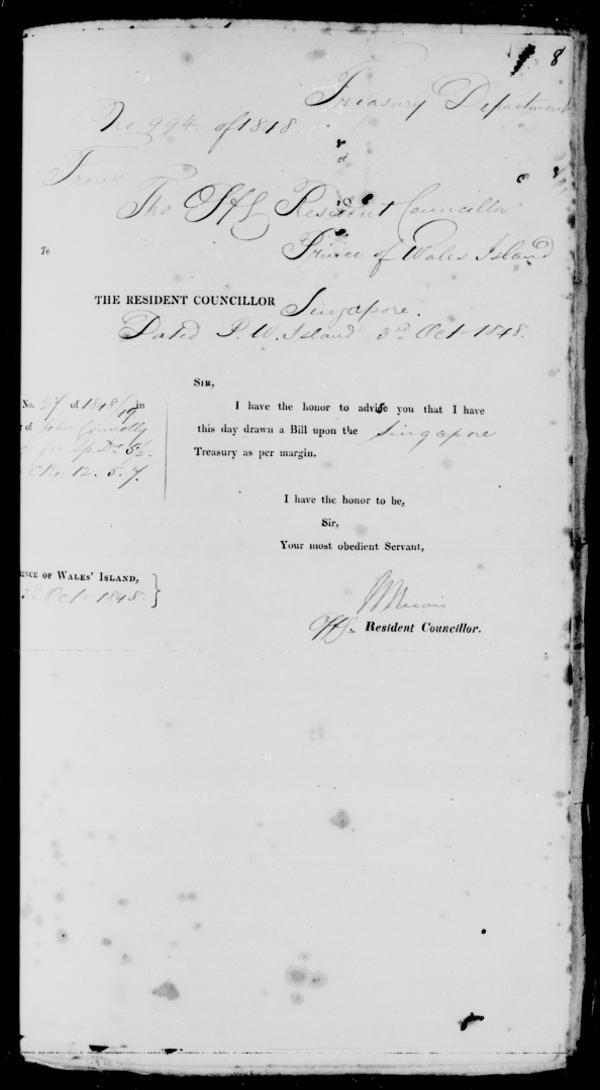 8
Treasury Department
No 994 of 1848.
From
The Offg Resident Councillor
Prince of Wales Island
To
THE RESIDENT COUNCILLOR Singapore.
Dated P. W. Island 3rd Oct 1848.
SIR,
I have the honor to advise you that I have
this day drawn a Bill upon the Singapore
Treasury as per margin.
No. 27 of 1848/49 in
of John Connolly
for Sp Ds 5½.
CRs. 12. 5. 7.
I have the honor to be,
Sir,
Your most obedient Servant,
INCE OF WALES' ISLAND,
3rd Oct 1848.
Offg. Resident Councillor.